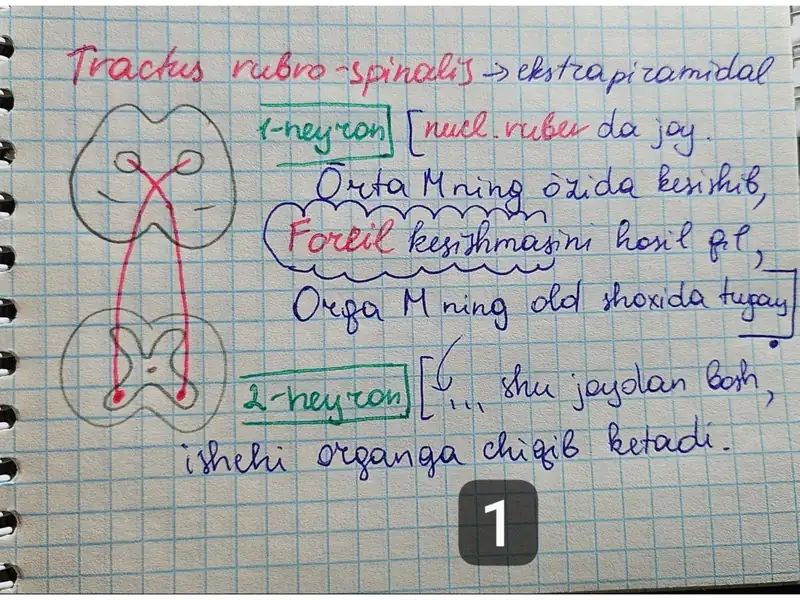 Tractus rubro-spinalis → ekstrapiramidal
1-neyron [nucl. ruber da joy.
Orta M ning özida kesishib,
Forel kesishmasini hosil qil,
Orqa M ning old shoxida tugay]
2-neyron [... shu joydan bosh,
ishchi organga chiqib ketadi.
1